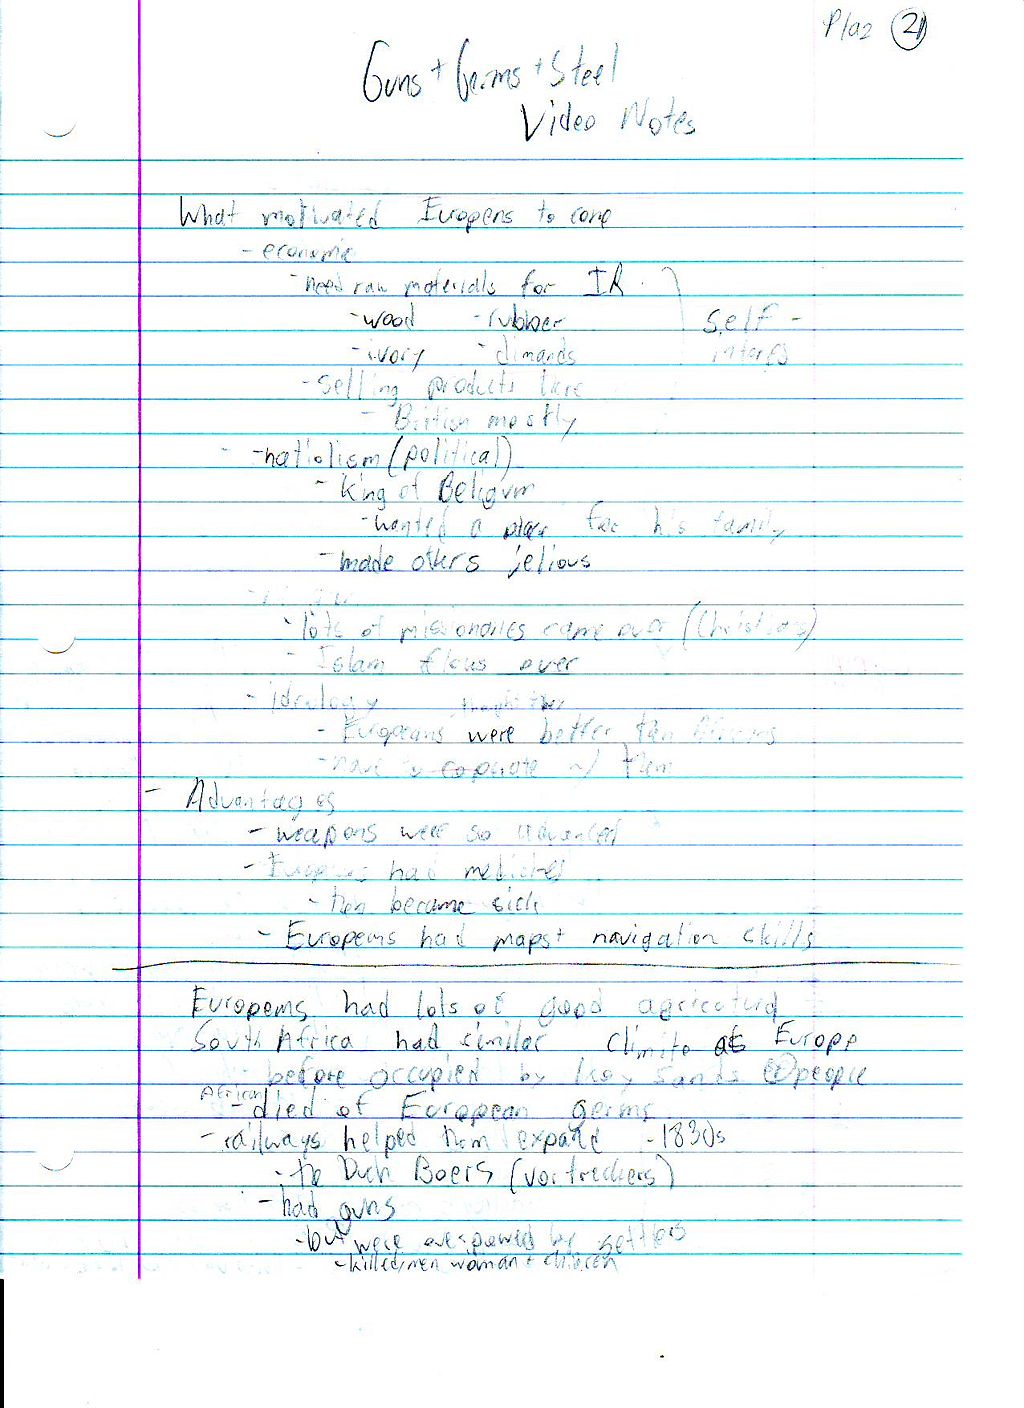 21
Guns + Germs + Steel
Video Notes
What motivated Europens to come
- economic
- need raw materials for IR
- wood - rubber
self -
- ivory - dimands
- selling products here
- British mostly
- natiolism (political)
- King of Beligum
- wanted a place for his family
- made others jelious
- lots of missionaries came over (Christians)
- Islam over
- ideology
thought they
- Europeans were better than Africans
- w/ them
- Advantages
- weapons were so advanced
- Europeans had medicines
- then became sick
- Europens had maps + navigation skills
Europens had lots of good
South Africa had similar climite as Europe
before occupied by people
African
- died of European germs
- railways helped them expand - 1830s
- the Dutch Boers (vortreckers)
- had guns
- but were overpowered by settlers
- killed men woman + children